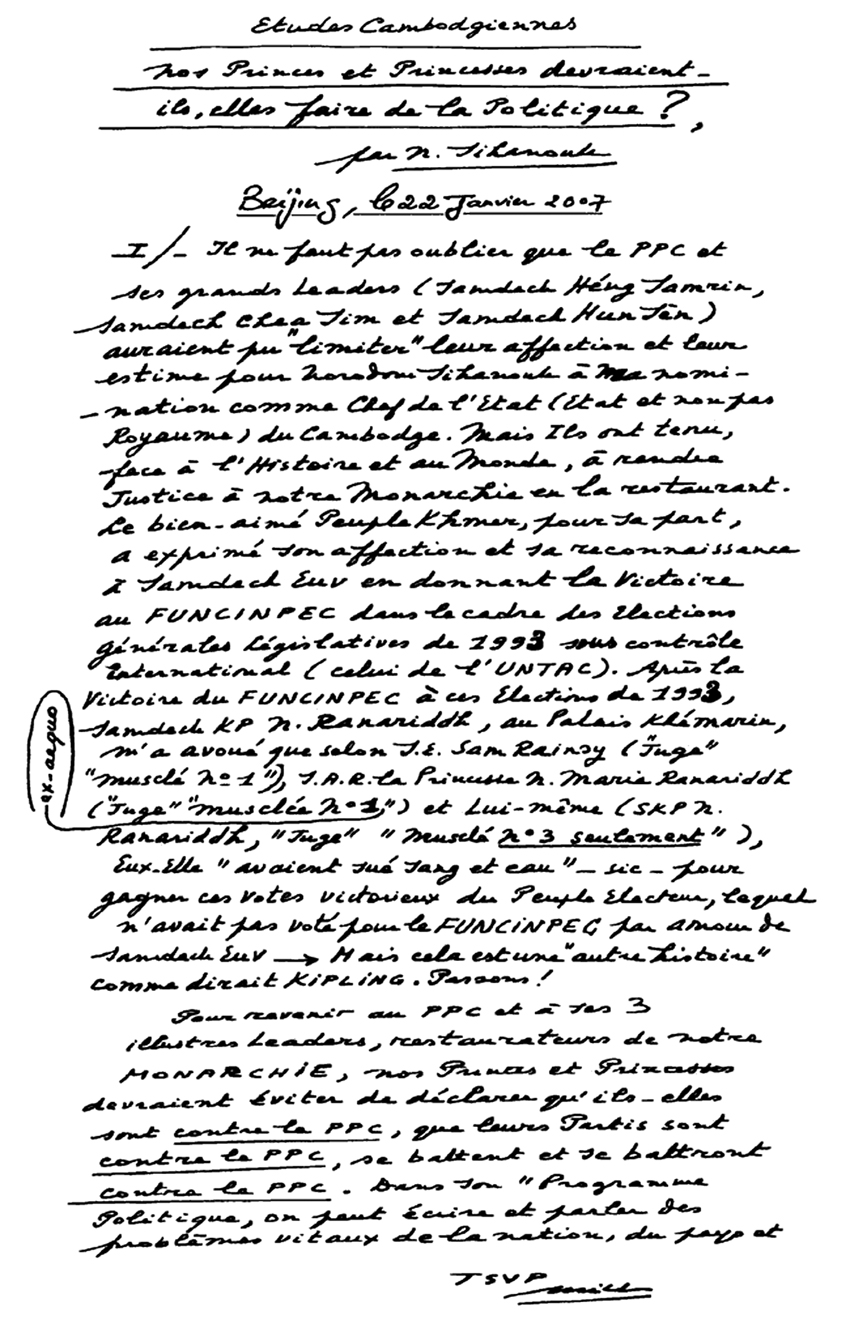 Etudes Cambodgiennes
Nos Princes et Princesses devraient-
ils, elles faire de la Politique ?,
par N. Sihanouk
Beijing, le 22 Janvier 2007
I/- Il ne faut pas oublier que le PPC et
ses grands Leaders (Samdech Héng Samrin,
Samdech Chea Sim et Samdech Hun Sèn)
auraient pu "limiter" leur affection et leur
estime pour Norodom Sihanouk à Ma nomi-
-nation comme Chef de l'Etat (Etat et non pas
Royaume) du Cambodge. Mais Ils ont tenu,
face à l'Histoire et au Monde, à rendre
Justice à notre Monarchie en la restaurant.
Le bien-aimé Peuple Khmer, pour sa part,
a exprimé son affection et sa reconnaissance
à Samdech Euv en donnant la Victoire
au FUNCINPEC dans le cadre des Elections
Générales Législatives de 1993 sous contrôle
International (celui de l'UNTAC). Après la
Victoire du FUNCINPEC à ces Elections de 1993,
Samdech KP N. Ranariddh, au Palais Khémarin,
m'a avoué que selon S.E. Sam Rainsy ("Juge"
"musclé No 1"), S.A.R. la Princesse N. Marie Ranariddh
("Juge" "musclée No 1") et Lui-même (SKP N.
ex-aequo
Ranariddh, "Juge" "Musclé No 3 seulement"),
Eux-Elle "avaient sué sang et eau" - sic - pour
gagner ces votes victorieux du Peuple Electeur, lequel
n'avait pas voté pour le FUNCINPEC par amour de
Samdech Euv → Mais cela est une "autre histoire"
comme dirait KIPLING. Passons !
Pour revenir au PPC et à ses 3
illustres Leaders, restaurateurs de notre
MONARCHIE, nos Princes et Princesses
devraient éviter de déclarer qu'ils-elles
sont contre le PPC, que leurs Partis sont
contre le PPC, se battent et se battront
contre le PPC. Dans son "Programme
Politique, on peut écrire et parler des
problèmes vitaux de la nation, du pays et
TSVP